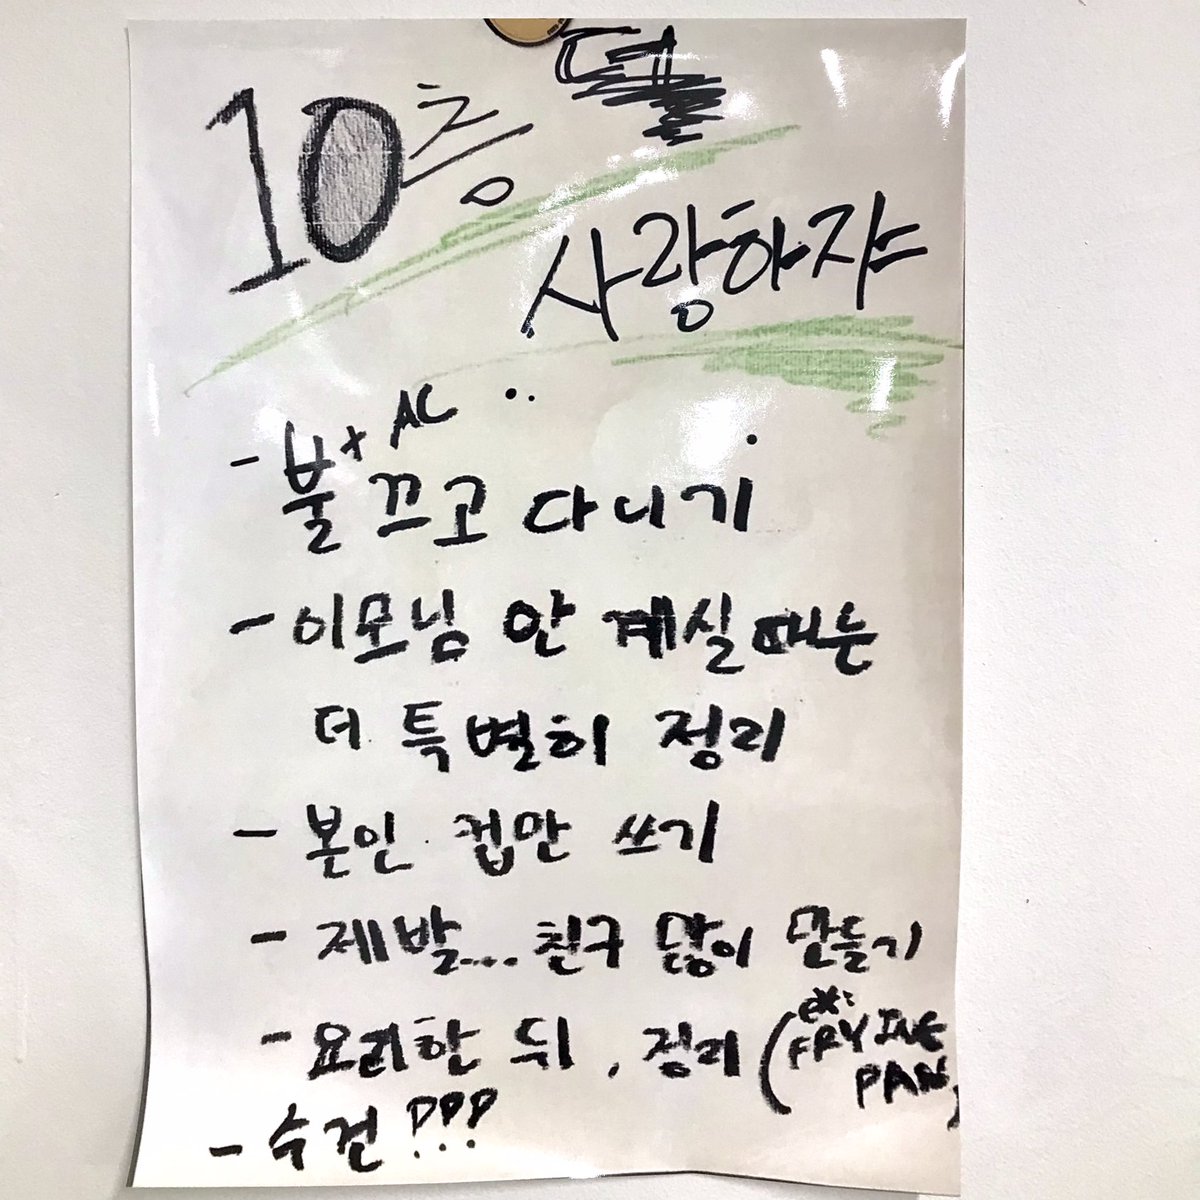 10층
사랑하자
- 불 + AC 끄고 다니기
- 이모님 안 계실때는
더 특별히 정리
- 본인 컵만 쓰기
- 제발... 친구 많이 만들기
- 요리한 뒤, 정리 (ex: FRYING PAN)
- 수건???